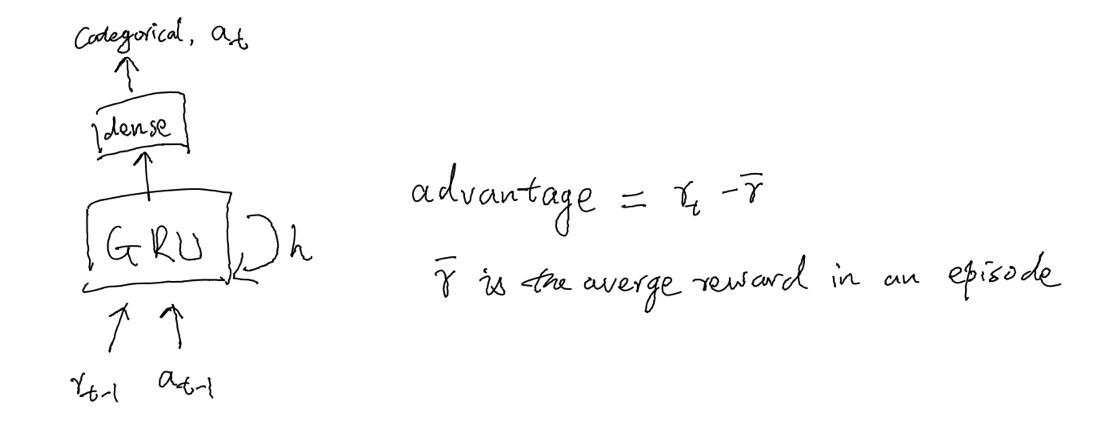 Categorical, a_t
dense
GRU
h
r_{t-1} a_{t-1}
advantage = r_t - r̄
r̄ is the averge reward in an episode